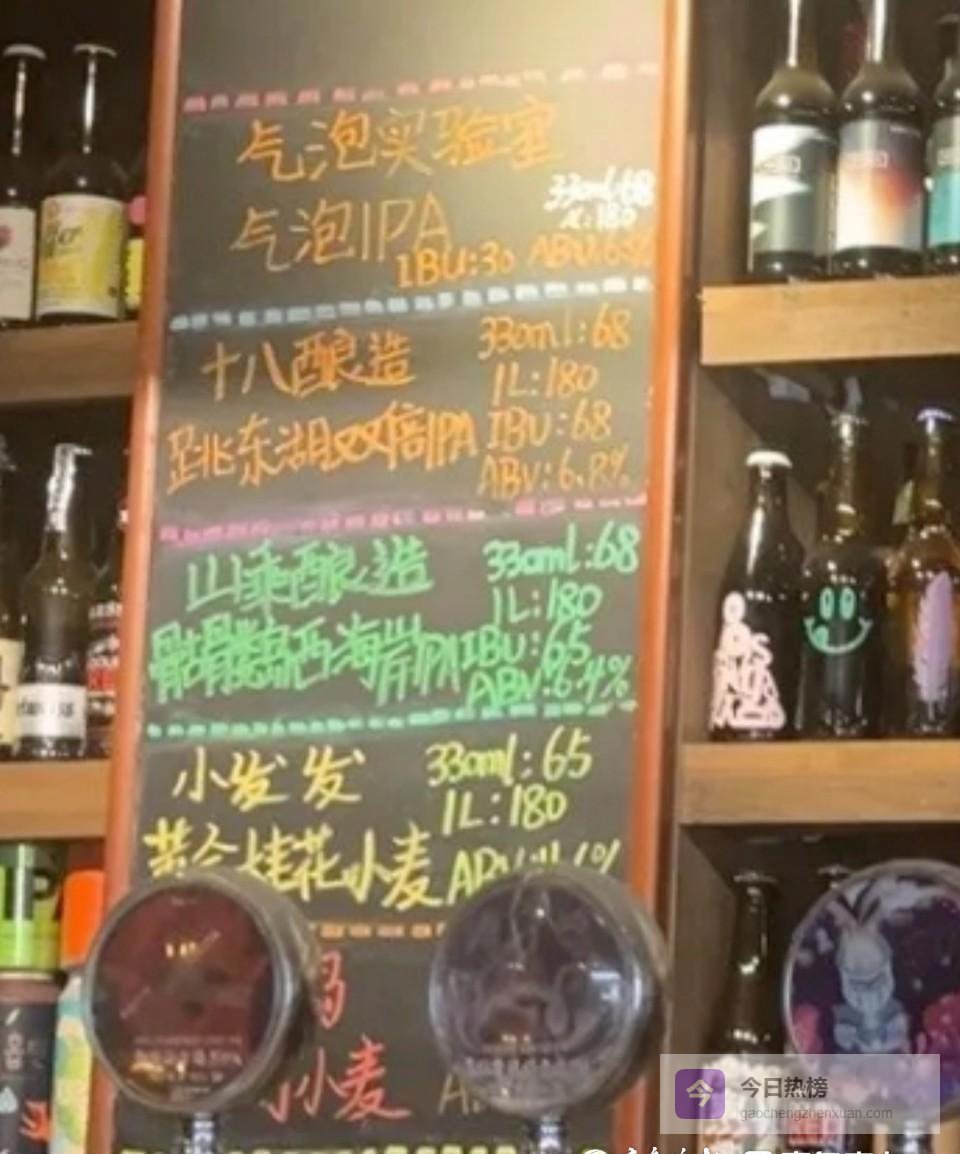 气泡实验室
气泡IPA
330ml:68
1L:180
IBU:30 ABV:6.8%
十八酿造
330ml:68
1L:180
跳东湖双倍IPA
IBU:68
ABV:6.8%
山乘酿造
330ml:68
1L:180
骷髅岛西海岸IPA
IBU:65
ABV:6.4%
小发发
330ml:65
1L:180
黄金桂花小麦
小麦
今
今日热榜
gaochengzhenxuan.com